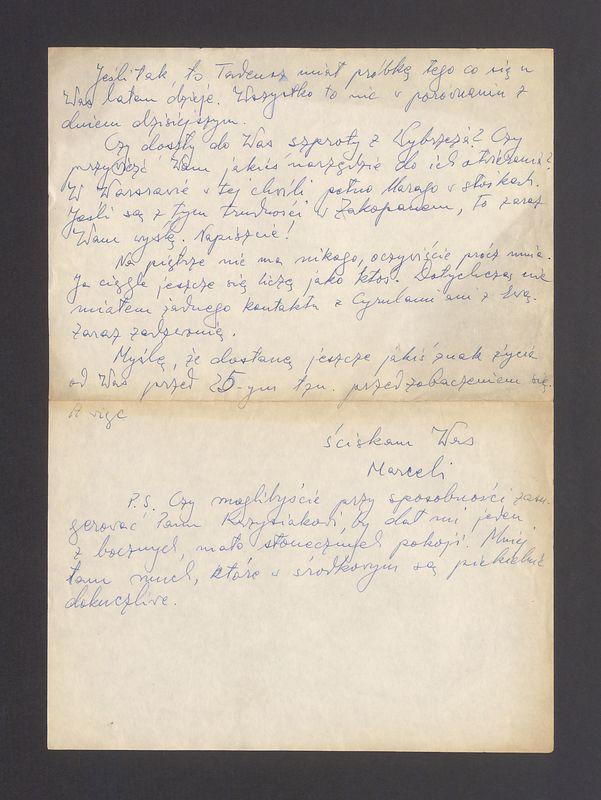 Jeśli tak, to Tadeusz miał próbkę tego co się u
Was latem dzieje. Wszystko to nic w porównaniu z
dniem dzisiejszym.
Czy doszły do Was szproty z Wybrzeża? Czy
przywieźć Wam jakieś narzędzie do ich otwierania?
W Warszawie w tej chwili pełno Marago w słoikach.
Jeśli są z tym trudności w Zakopanem, to zaraz
Wam wyślę. Napiszcie!
Na piętrze nie ma nikogo, oczywiście prócz mnie.
Ja ciągle jeszcze się liczę jako ktoś. Dotychczas nie
miałem żadnego kontaktu z Cyrulami ani z Ewą.
Zaraz zadzwonię.
Myślę, że dostanę jeszcze jakiś znak życia
od Was przed 25-ym tzn. przed zobaczeniem się.
A więc
ściskam Was
Marceli
P.S. Czy moglibyście przy sposobności zasu-
gerować Panu Krzysiakowi, by dał mi jeden
z bocznych, mało słonecznych pokoji. Mniej
tam much, które w środkowym są piekielnie
dokuczliwe.